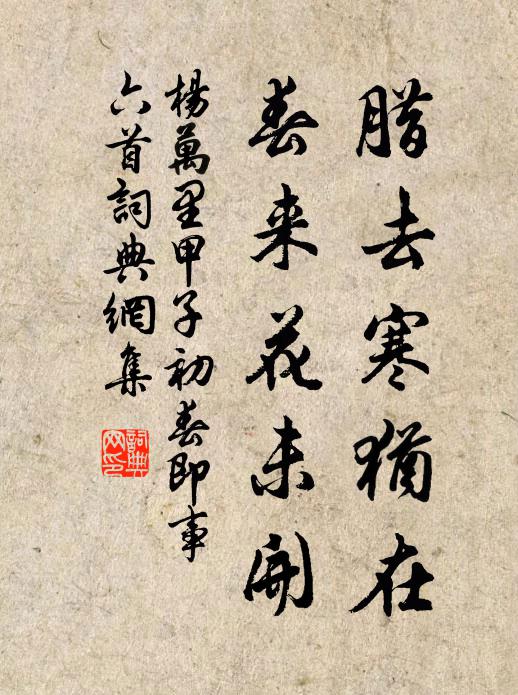 腊去寒猶在
春来花未開
楊萬里甲子初春即事
六首詞典網集
詞典网印